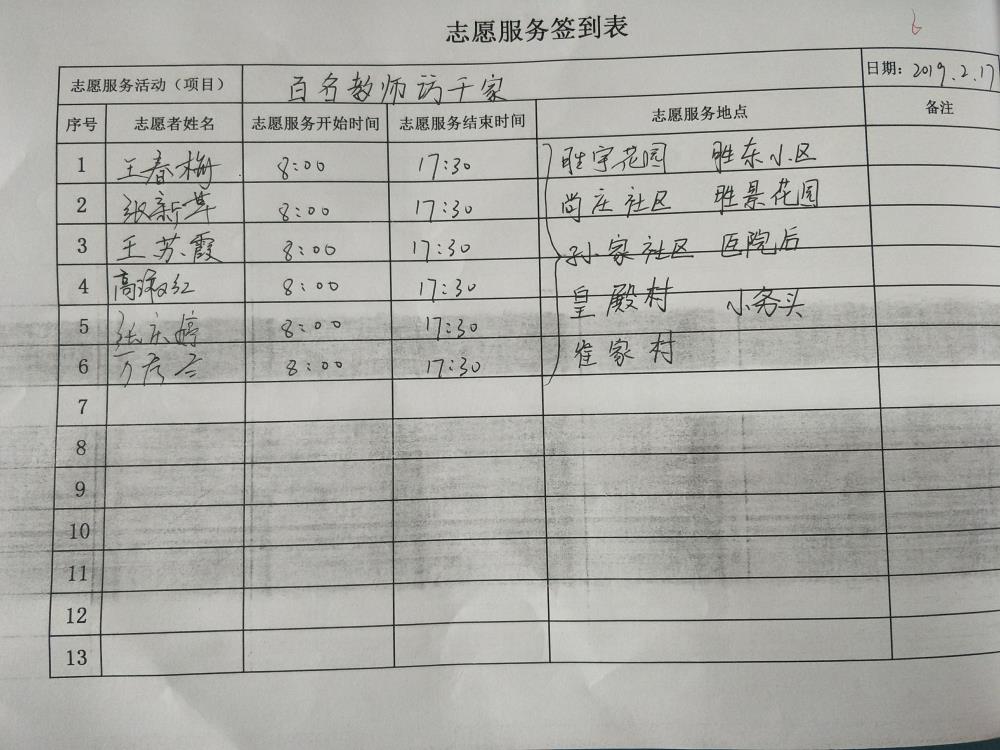 志愿服务签到表
志愿服务活动（项目） 百名教师访千家 日期：2019.2.17
序号 志愿者姓名 志愿服务开始时间 志愿服务结束时间 志愿服务地点 备注
1 王春梅 8:00 17:30 胜宇花园 胜东小区
2 张新 8:00 17:30 尚庄社区 胜景花园
3 王苏霞 8:00 17:30 孙家社区 医院后
4 高淑红 8:00 17:30 皇殿村 小务头
5 张庆婷 8:00 17:30 崔家村
6 万 8:00 17:30
7
8
9
10
11
12
13